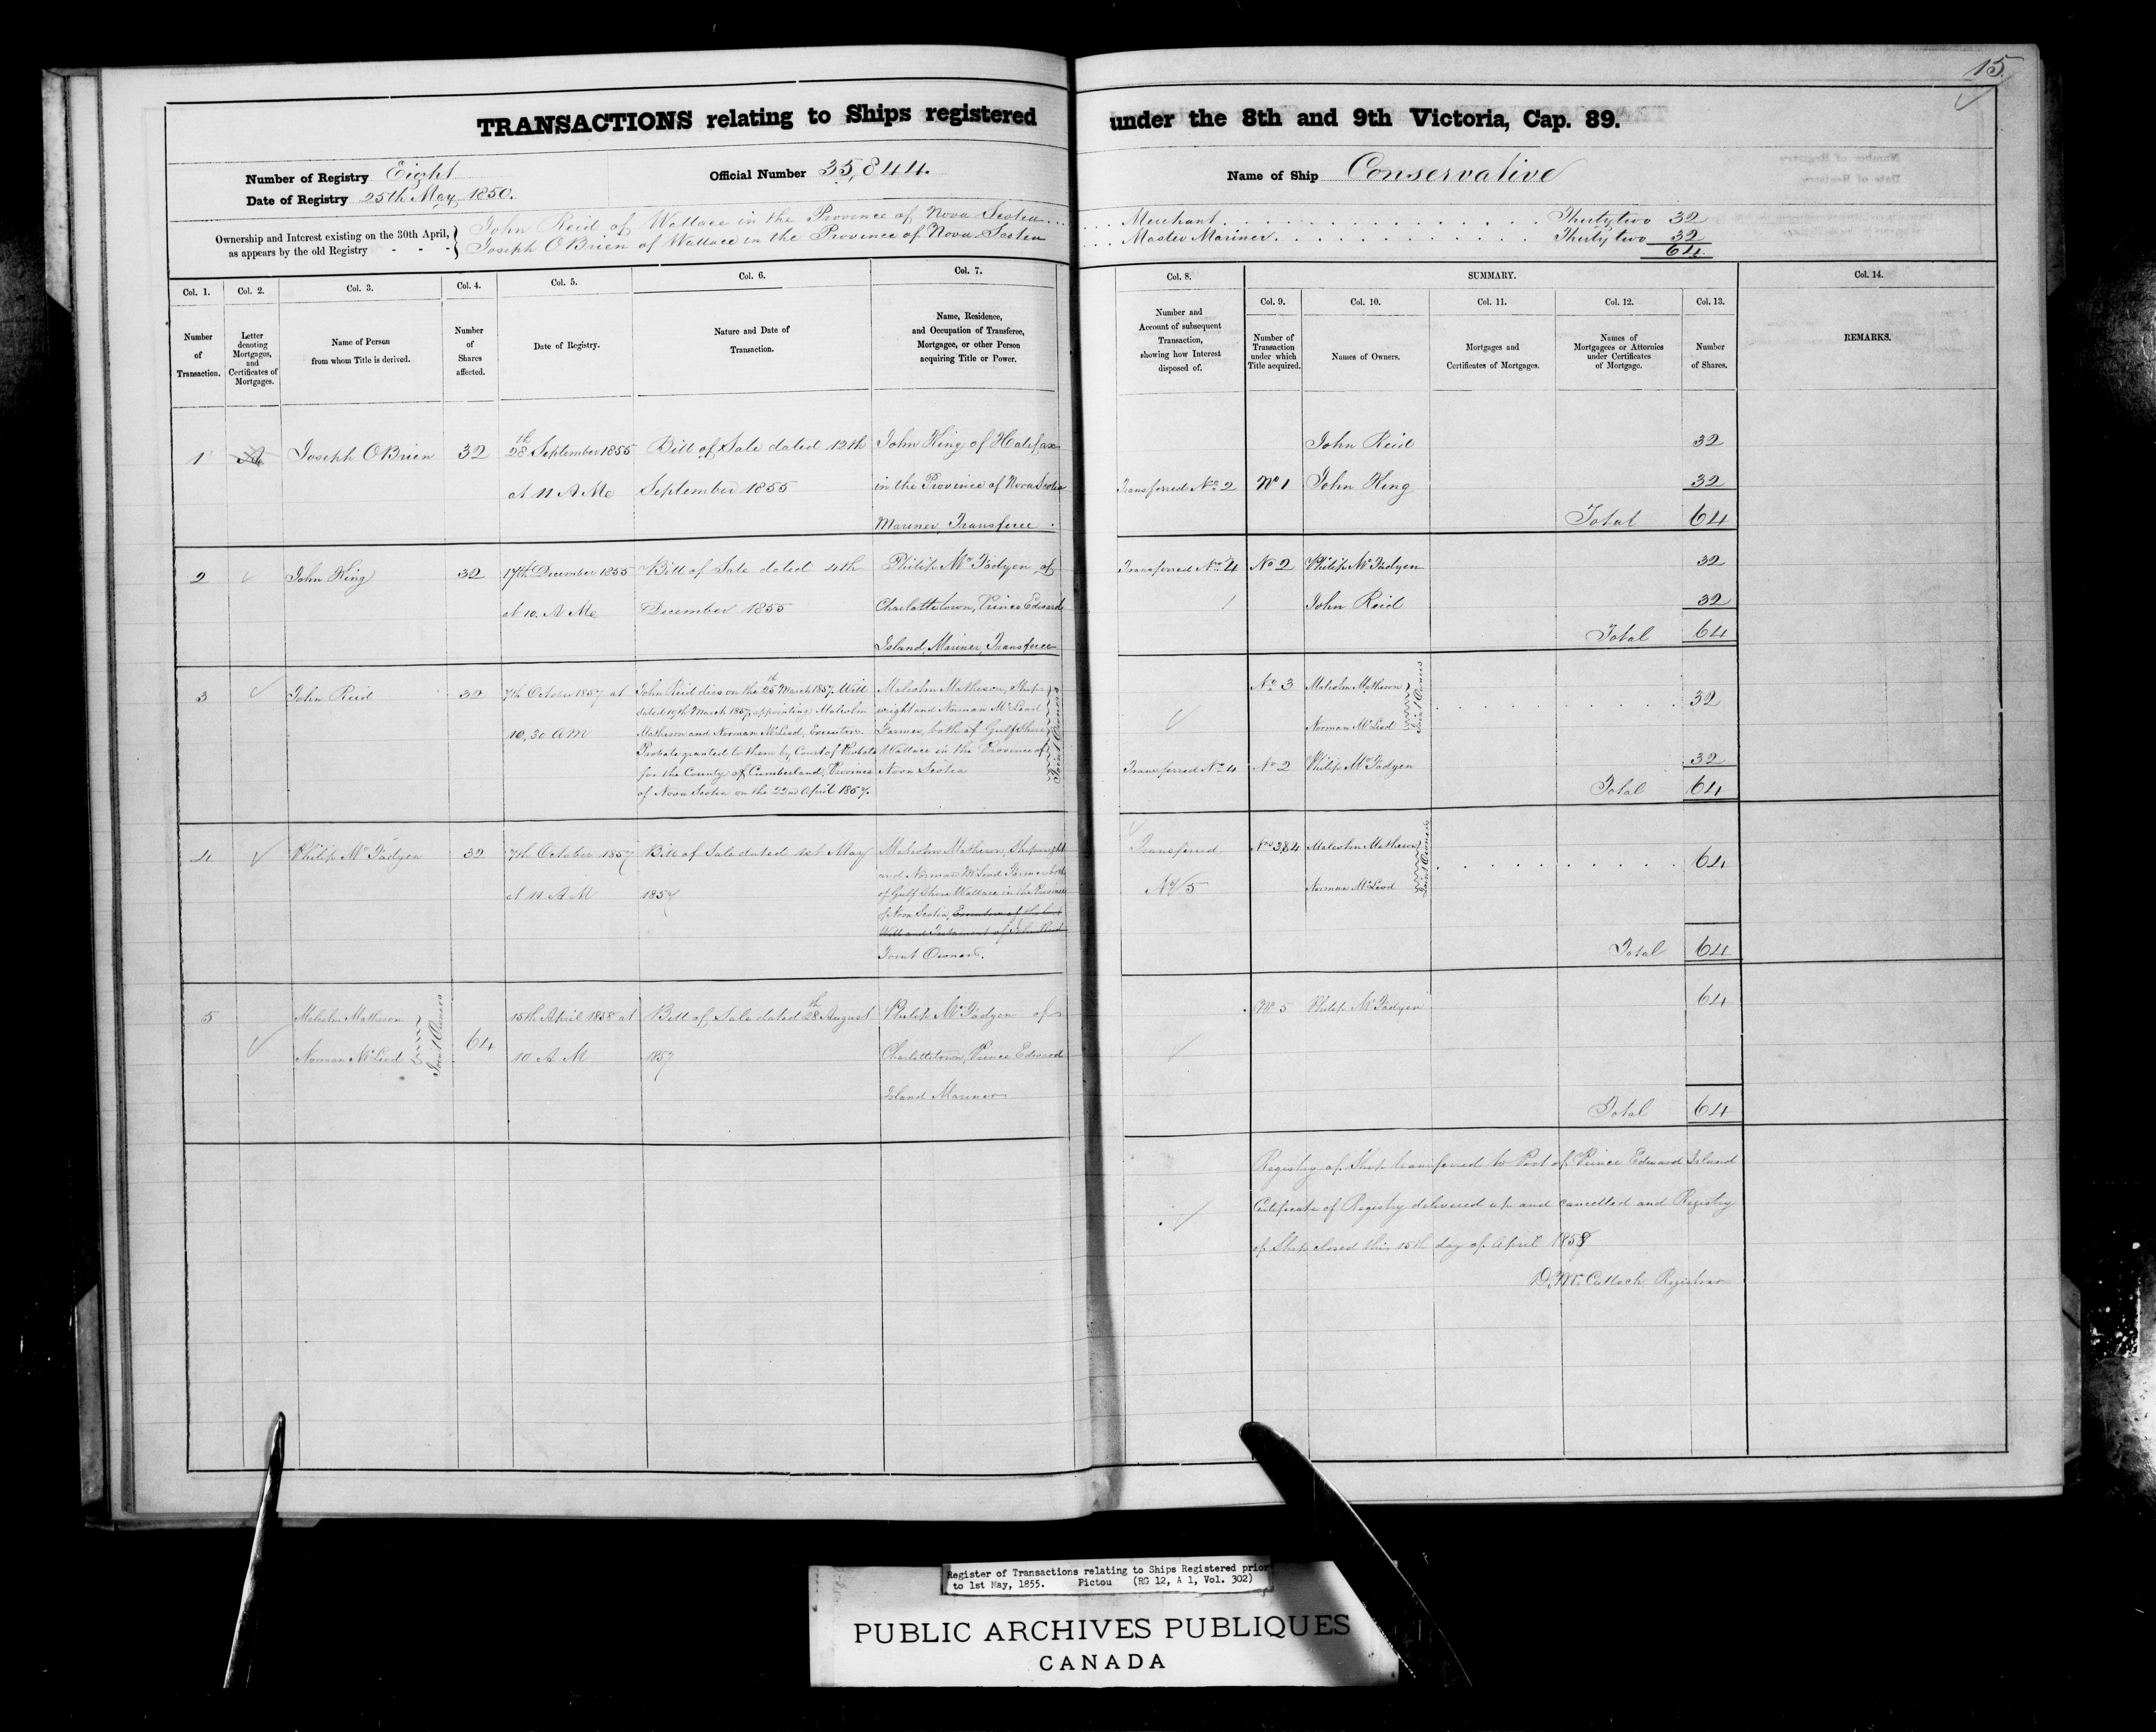 15
TRANSACTIONS relating to Ships registered under the 8th and 9th Victoria, Cap. 89.
Number of Registry Eight
Date of Registry 25th May 1850.
Official Number 35,844.
Name of Ship Conservative
Ownership and Interest existing on the 30th April, as appears by the old Registry - - -
John Reid of Wallace in the Province of Nova Scotia ... Merchant . . . Thirty two 32
Joseph OBrien of Wallace in the Province of Nova Scotia ... Master Mariner . . . Thirty two 32
64
Col. 1. Col. 2. Col. 3. Col. 4. Col. 5. Col. 6. Col. 7.
Number of Transaction.
Letter denoting Mortgages, and Certificates of Mortgages.
Name of Person from whom Title is derived.
Number of Shares affected.
Date of Registry.
Nature and Date of Transaction.
Name, Residence, and Occupation of Transferee, Mortgagee, or other Person acquiring Title or Power.
Col. 8.
Number and Account of subsequent Transaction, showing how Interest disposed of.
SUMMARY.
Col. 9. Col. 10. Col. 11. Col. 12. Col. 13.
Number of Transaction under which Title acquired.
Names of Owners.
Mortgages and Certificates of Mortgages.
Names of Mortgagees or Attornies under Certificates of Mortgage.
Number of Shares.
Col. 14.
REMARKS.
1 A Joseph OBrien 32
28th September 1855
at 11 A M
Bill of Sale dated 12th
September 1855
John King of Halifax
in the Province of Nova Scotia
Mariner, Transferee.
John Reid 32
Transferred No 2 No 1 John King 32
Total 64
2 John King 32
17th December 1855
at 10. A M
Bill of Sale dated 4th
December 1855
Philip McFadyen of
Charlottetown, Prince Edward
Island, Mariner, Transferee
Transferred No 4 No 2 Philip McFadyen 32
John Reid 32
Total 64
3 John Reid 32
7th October 1857 at
10,30 AM
John Reid dies on the 25th March 1857. Will
dated 19th March 1857, appointing Malcolm
Matheson and Norman McLeod, Executors.
Probate granted to them by Court of Probate
for the County of Cumberland, Province
of Nova Scotia on the 22nd April 1857.
Malcolm Matheson, Ship-
wright and Norman McLeod
Farmer, both of Gulf Shore
Wallace in the Province of
Nova Scotia
Joint Owners
No 3 Malcolm Matheson
Norman McLeod
Joint Owners
32
Transferred No 4 No 2 Philip McFadyen 32
Total 64
4 Philip McFadyen 32
7th October 1857
at 11 A M
Bill of Sale dated 1st May
1857
Malcolm Matheson, Shipwright
and Norman McLeod Farmer both
of Gulf Shore Wallace in the Province
of Nova Scotia, Executors of the last
Will and Testament of John Reid
Joint Owners.
Transferred
No 5
Nos 3&4 Malcolm Matheson
Norman McLeod
Joint Owners
64
Total 64
5 Malcolm Matheson
Norman McLeod
Joint Owners
64
15th April 1858 at
10 A M
Bill of Sale dated 28th August
1857
Philip McFadyen of
Charlottetown, Prince Edward
Island Mariner
No 5 Philip McFadyen 64
Total 64
Registry of Ship transferred to Port of Prince Edward Island
Certificate of Registry delivered up and cancelled and Registry
of Ship closed this 15th day of April 1858
D. McCulloch Registrar
Register of Transactions relating to Ships Registered prior
to 1st May, 1855. Pictou (RG 12, A 1, Vol. 302)
PUBLIC ARCHIVES PUBLIQUES
CANADA